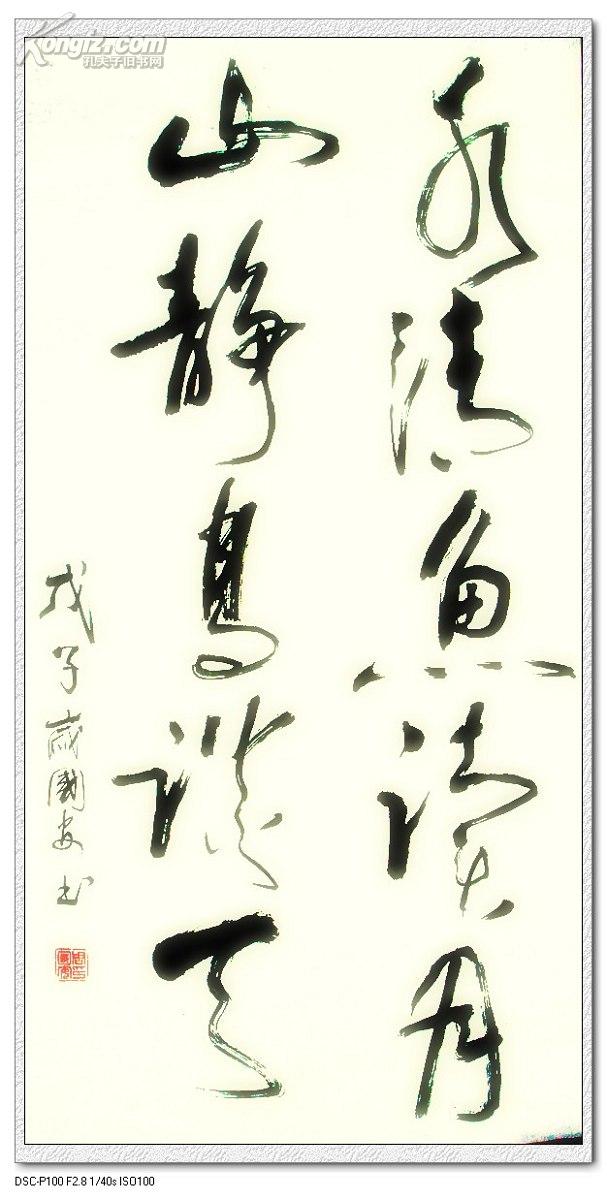 水清魚读月
山静鳥谈天
戊子歲國安书
Kongfz.com
孔夫子旧书网
DSC-P100 F2.8 1/40s ISO100